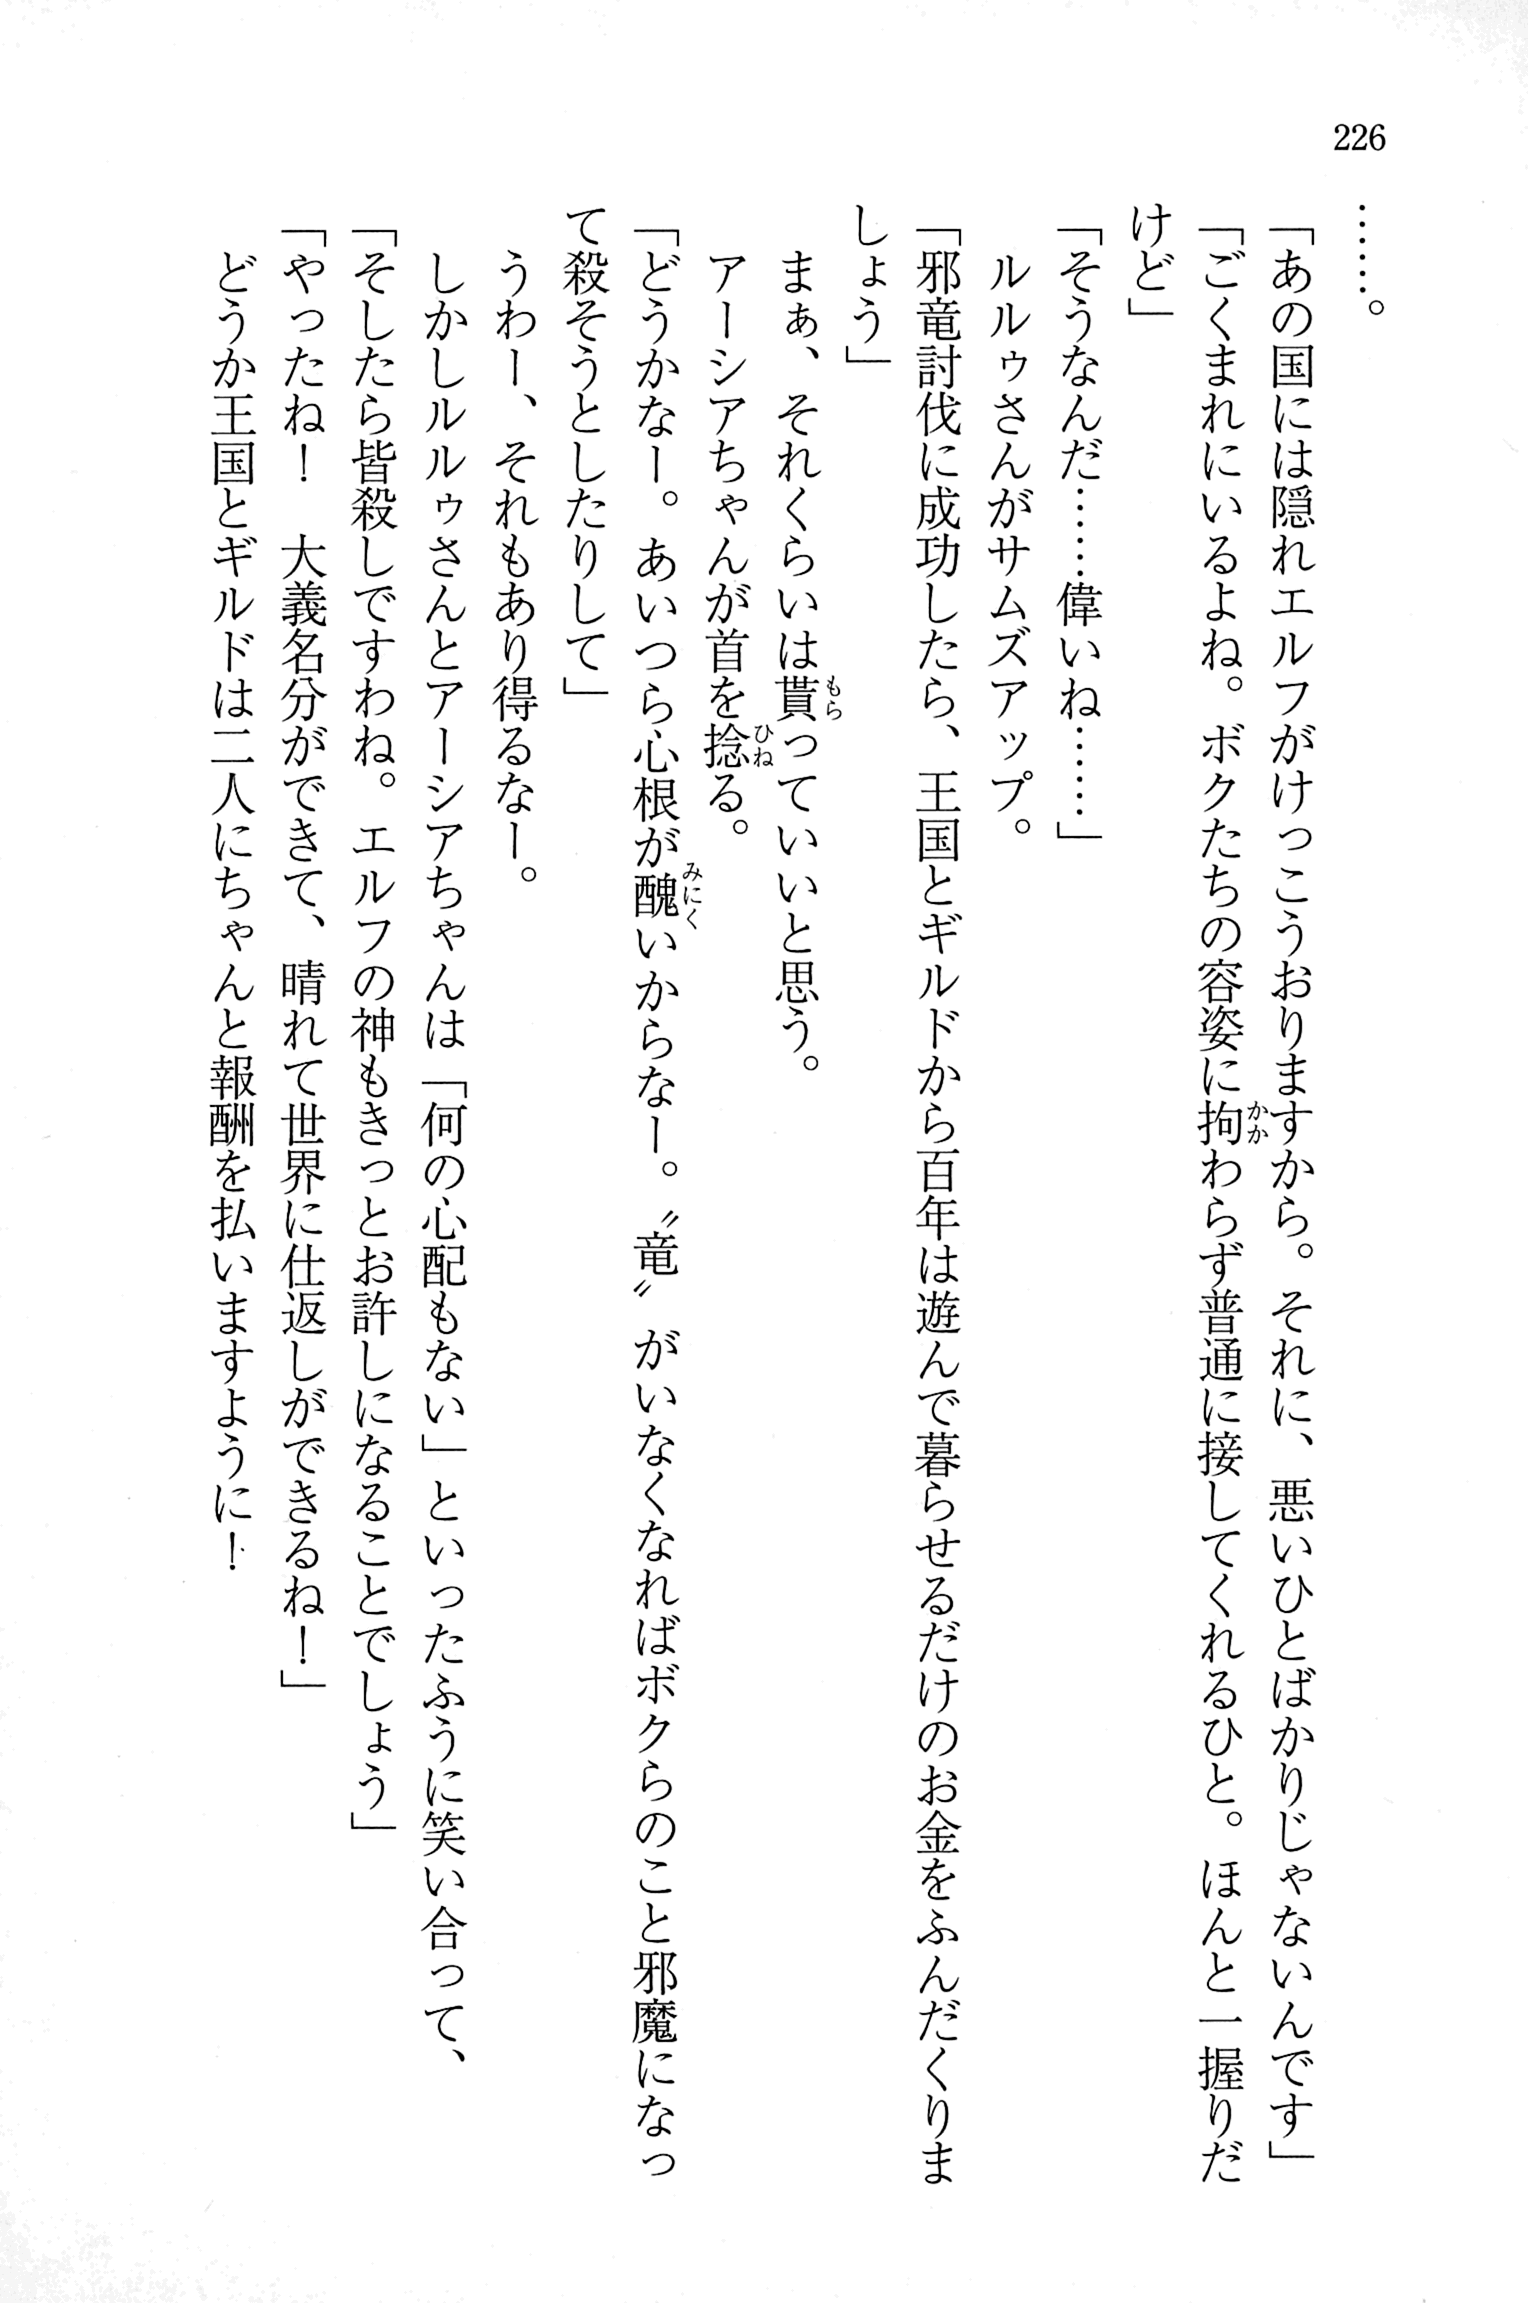 226
……。
「あの国には隠れエルフがけっこうおりますから。それに、悪いひとばかりじゃないんです」
「ごくまれにいるよね。ボクたちの容姿に拘わらず普通に接してくれるひと。ほんと一握りだ
けど」
「そうなんだ……偉いね……」
ルルゥさんがサムズアップ。
「邪竜討伐に成功したら、王国とギルドから百年は遊んで暮らせるだけのお金をふんだくりま
しょう」
まぁ、それくらいは貰っていいと思う。
アーシアちゃんが首を捻る。
「どうかなー。あいつら心根が醜いからなー。〝竜〟がいなくなればボクらのこと邪魔になっ
て殺そうとしたりして」
うわー、それもあり得るなー。
しかしルルゥさんとアーシアちゃんは「何の心配もない」といったふうに笑い合って、
「そしたら皆殺しですわね。エルフの神もきっとお許しになることでしょう」
「やったね！　大義名分ができて、晴れて世界に仕返しができるね！」
どうか王国とギルドは二人にちゃんと報酬を払いますように！
かか
もら
ひね
みにく